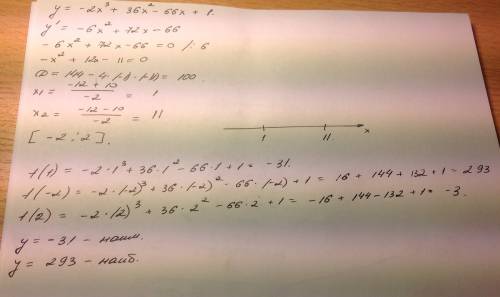 y = -2x³ + 36x² - 66x + 1.
y' = -6x² + 72x - 66
-6x² + 72x - 66 = 0 /: 6
-x² + 12x - 11 = 0
D = 144 - 4·(-1)·(-11) = 100.
x1 = (-12 + 10)/-2 = 1
x2 = (-12 - 10)/-2 = 11
1 11 x
[-2; 2].
f(1) = -2·1³ + 36·1² - 66·1 + 1 = -31.
f(-2) = -2·(-2)³ + 36·(-2)² - 66·(-2) + 1 = 16 + 144 + 132 + 1 = 293
f(2) = -2·(2)³ + 36·2² - 66·2 + 1 = -16 + 144 - 132 + 1 = -3.
y = -31 - наим.
y = 293 - наиб.